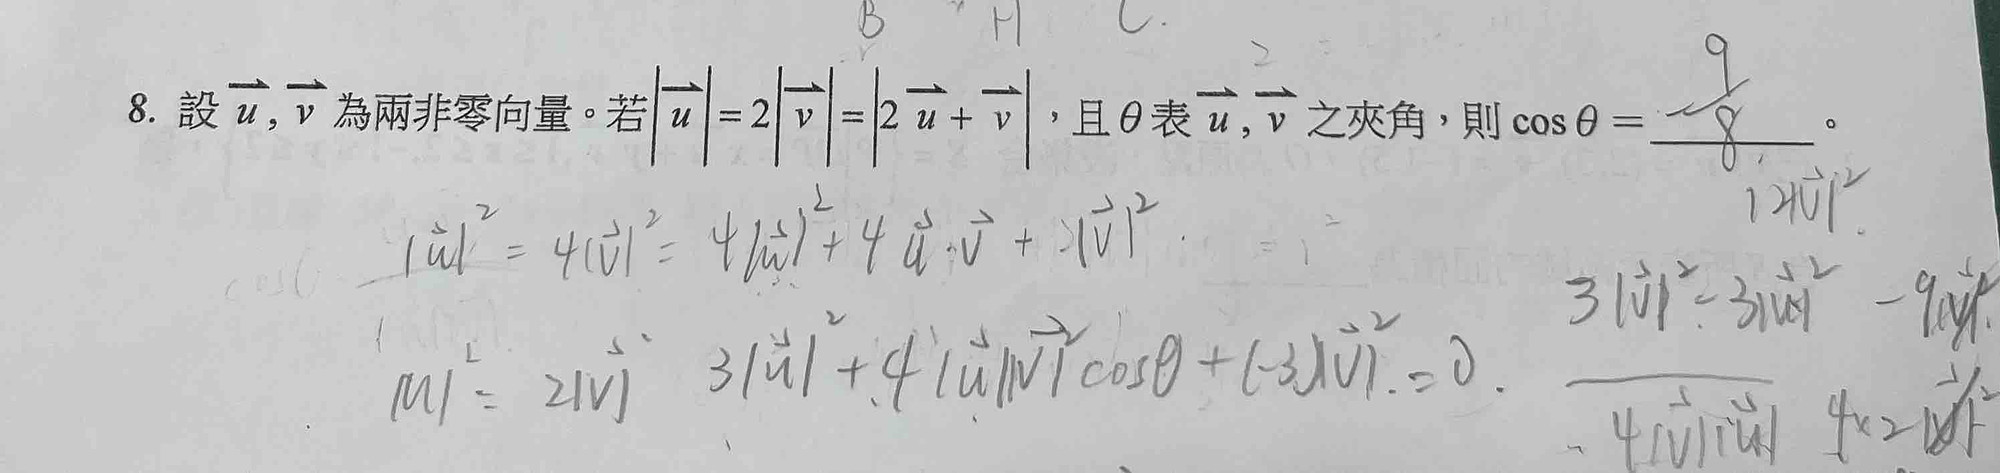 B H C.
2
8. 設 $\overrightarrow{u}$, $\overrightarrow{v}$ 為兩非零向量。若 $|\overrightarrow{u}| = 2|\overrightarrow{v}| = |2\overrightarrow{u} + \overrightarrow{v}|$，且 θ 表 $\overrightarrow{u}$, $\overrightarrow{v}$ 之夾角，則 cos θ = $-\frac{9}{8}$。
12$|\vec{v}|^2$.
$|\vec{u}|^2 = 4|\vec{v}|^2 = 4|\vec{u}|^2 + 4\vec{u}\cdot\vec{v} + |\vec{v}|^2$
$3|\vec{v}|^2 - 3|\vec{u}|^2$ $-9|\vec{v}|^2$
$|u|^2 = 2|\vec{v}|$ $3|\vec{u}|^2 + 4|\vec{u}||\vec{v}|^2 \cos\theta + (-3)|\vec{v}|^2 = 0$.
$4|\vec{v}||\vec{u}|$ $4 \times 2|\vec{v}|^2$